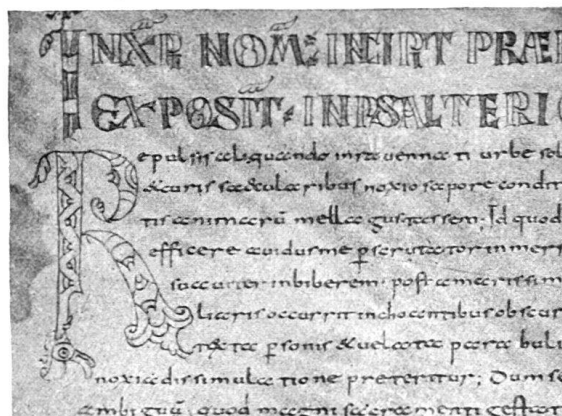 INXPI NOM̄ INCIPT PRAE
EXPOSIT INPSALTERIO
Repulsis aliquando inravennati urbe sol
& curis saecularibus noxio sapore condit
tis animarū mella gustassem; Id quod
efficere auidus me p̱scrutator inmers
suauiter inbiberem· post amarissim
liaris occurrit inchoantibus obscur
texta p̱sonis & uelata parabuli
noxia dissimulatione preteritur; Dum se
ambiguū· quod magni sacramenti gestat